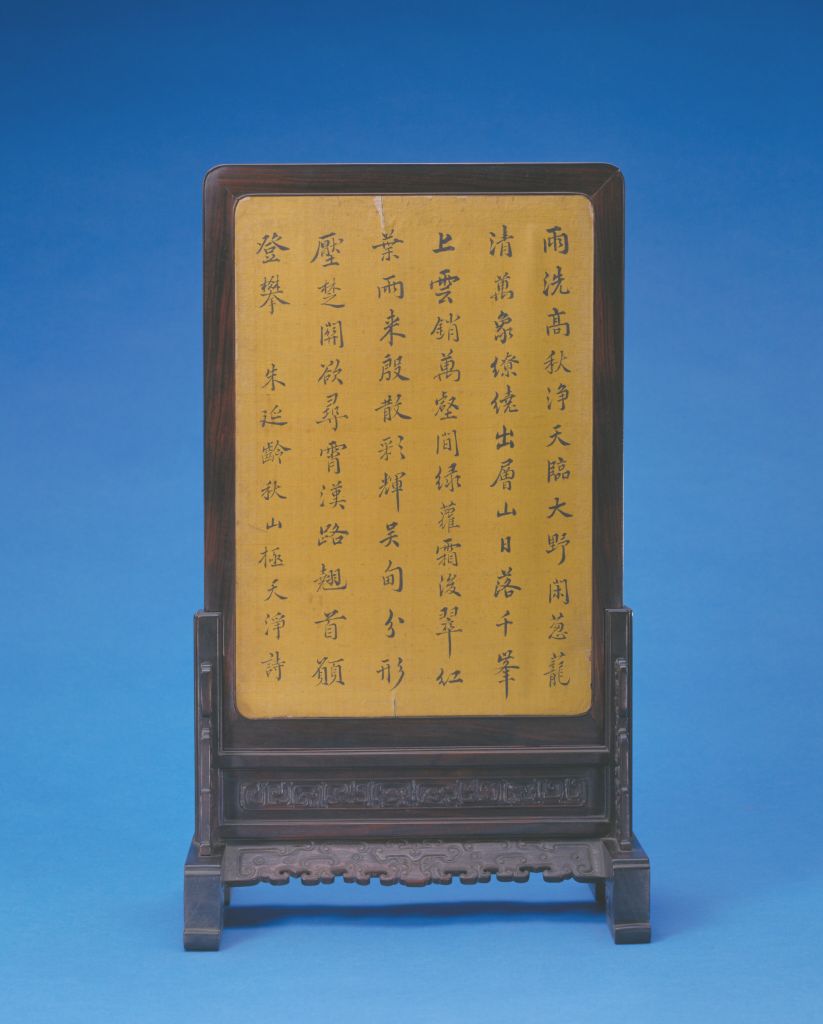 雨洗高秋淨天臨大野閑葱蘢
清萬象繚繞出層山日落千峯
上雲銷萬壑間綠蘿霜後翠紅
葉雨来殷散彩輝吳甸分形
壓楚關欲尋霄漢路翹首願
登攀 朱延齡秋山極天淨詩